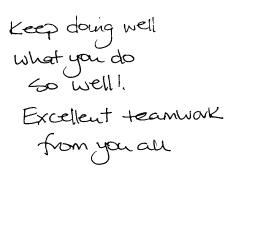 Keep doing well
what you do
so well!.
Excellent teamwork
from you all